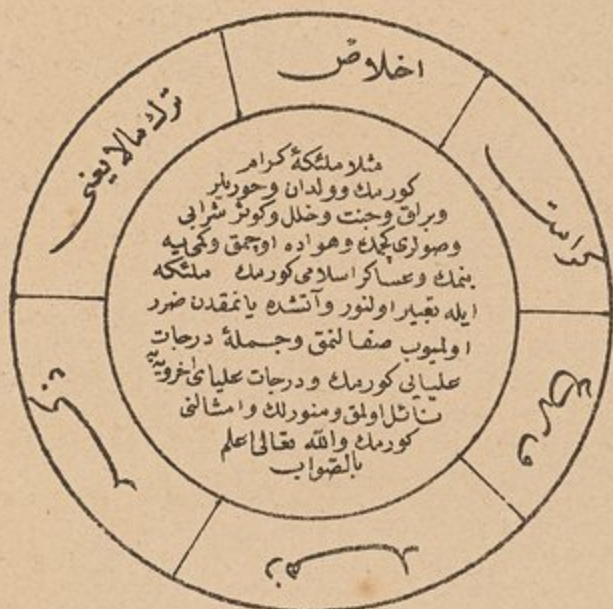 اخلاص
كرامت
ورع
زهد
ترك مالا يعنى
مثلا ملئكهٔ كرام
كورمك وولدان وحوريلر
وبراق وجنت وخلل وكوثر شرابى
وصولرى كچمك وهواده اوچمق وكمى يه
بنمك وعساكر اسلامى كورمك ملئكه
ايله تعبير اولنور وآتشده يانمقدن ضرر
اولميوب صفالنمق وجملهٔ درجات
عليايى كورمك ودرجات علياى اخرويه يه
نائل اولمق ومنورلك وامثالنى
كورمك والله تعالى اعلم
بالصواب